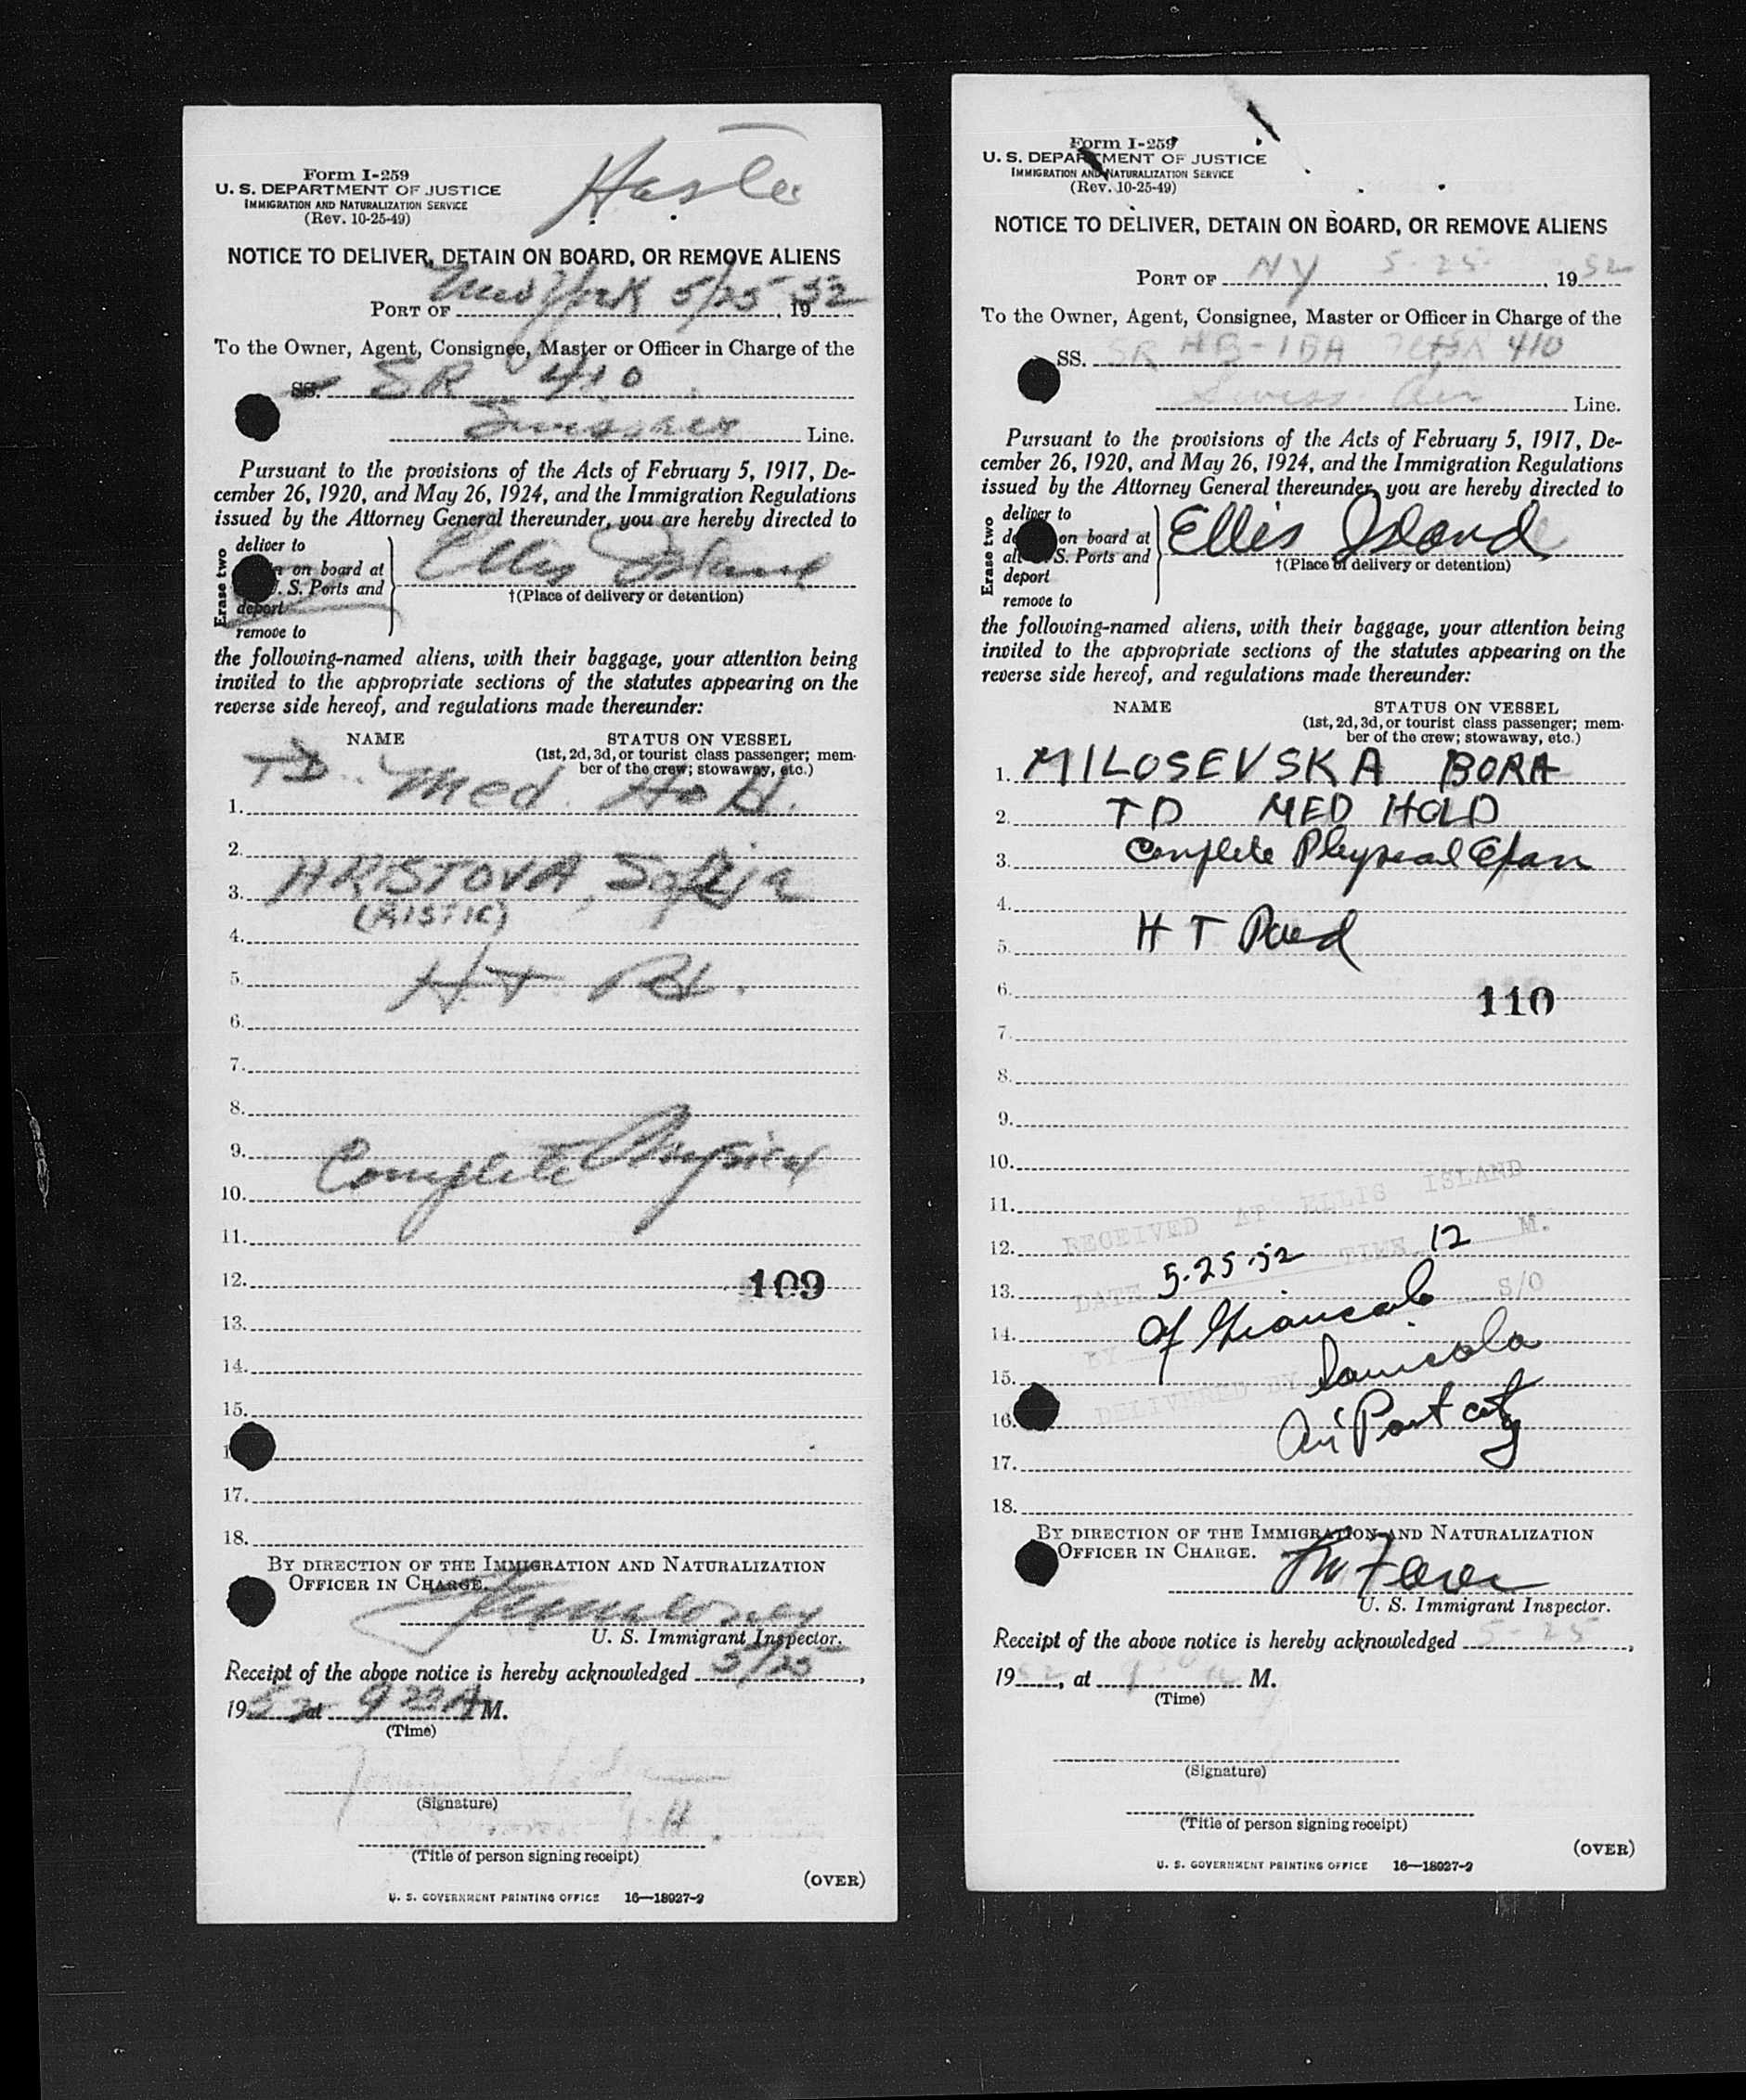 Form I-259
U. S. DEPARTMENT OF JUSTICE
IMMIGRATION AND NATURALIZATION SERVICE
(Rev. 10-25-49)
NOTICE TO DELIVER, DETAIN ON BOARD, OR REMOVE ALIENS
PORT OF New York 5/25 1952
To the Owner, Agent, Consignee, Master or Officer in Charge of the
SS. SR 410
Swissair Line.
Pursuant to the provisions of the Acts of February 5, 1917, De-
cember 26, 1920, and May 26, 1924, and the Immigration Regulations
issued by the Attorney General thereunder, you are hereby directed to
Erase two
deliver to
on board at
U. S. Ports and
deport
remove to
Ellis Island
†(Place of delivery or detention)
the following-named aliens, with their baggage, your attention being
invited to the appropriate sections of the statutes appearing on the
reverse side hereof, and regulations made thereunder:
NAME STATUS ON VESSEL
(1st, 2d, 3d, or tourist class passenger; mem-
ber of the crew; stowaway, etc.)
1. TD. Med. Hold.
2.
3. HRISTOVA, Sofija
(RISTIC)
4.
5. H.T Pd.
6.
7.
8.
9.
10. Complete Physical
11.
12. 109
13.
14.
15.
17.
18.
BY DIRECTION OF THE IMMIGRATION AND NATURALIZATION
OFFICER IN CHARGE.
U. S. Immigrant Inspector.
Receipt of the above notice is hereby acknowledged 5/25,
1952 at 9 22 A M.
(Time)
(Signature)
(Title of person signing receipt)
(OVER)
U. S. GOVERNMENT PRINTING OFFICE 16—18927-2
Form I-259
U. S. DEPARTMENT OF JUSTICE
IMMIGRATION AND NATURALIZATION SERVICE
(Rev. 10-25-49)
NOTICE TO DELIVER, DETAIN ON BOARD, OR REMOVE ALIENS
PORT OF NY 5-25-, 1952
To the Owner, Agent, Consignee, Master or Officer in Charge of the
SS. SR HB-IBA SR 410
Swiss Air Line.
Pursuant to the provisions of the Acts of February 5, 1917, De-
cember 26, 1920, and May 26, 1924, and the Immigration Regulations
issued by the Attorney General thereunder, you are hereby directed to
Erase two
deliver to
on board at
S. Ports and
deport
remove to
Ellis Island
†(Place of delivery or detention)
the following-named aliens, with their baggage, your attention being
invited to the appropriate sections of the statutes appearing on the
reverse side hereof, and regulations made thereunder:
NAME STATUS ON VESSEL
(1st, 2d, 3d, or tourist class passenger; mem-
ber of the crew; stowaway, etc.)
1. MILOSEVSKA BORA
2. TD MED HOLD
3. Complete Physical Exam
4.
5. H T Paid
6. 110
7.
8.
9.
10.
11. RECEIVED AT ELLIS ISLAND
12. DATE 5-25-52 TIME 12 M.
13. S/O
14. BY
15. DELIVERED BY
16. Air Port city
17.
18.
BY DIRECTION OF THE IMMIGRATION AND NATURALIZATION
OFFICER IN CHARGE.
U. S. Immigrant Inspector.
Receipt of the above notice is hereby acknowledged 5-25,
1952, at M.
(Time)
(Signature)
(Title of person signing receipt)
(OVER)
U. S. GOVERNMENT PRINTING OFFICE 16—18927-2